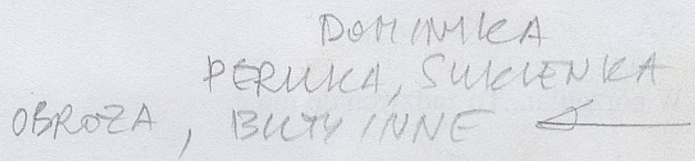 DOMINIKA
PERUKA, SUKIENKA
OBROŻA, BUTY INNE